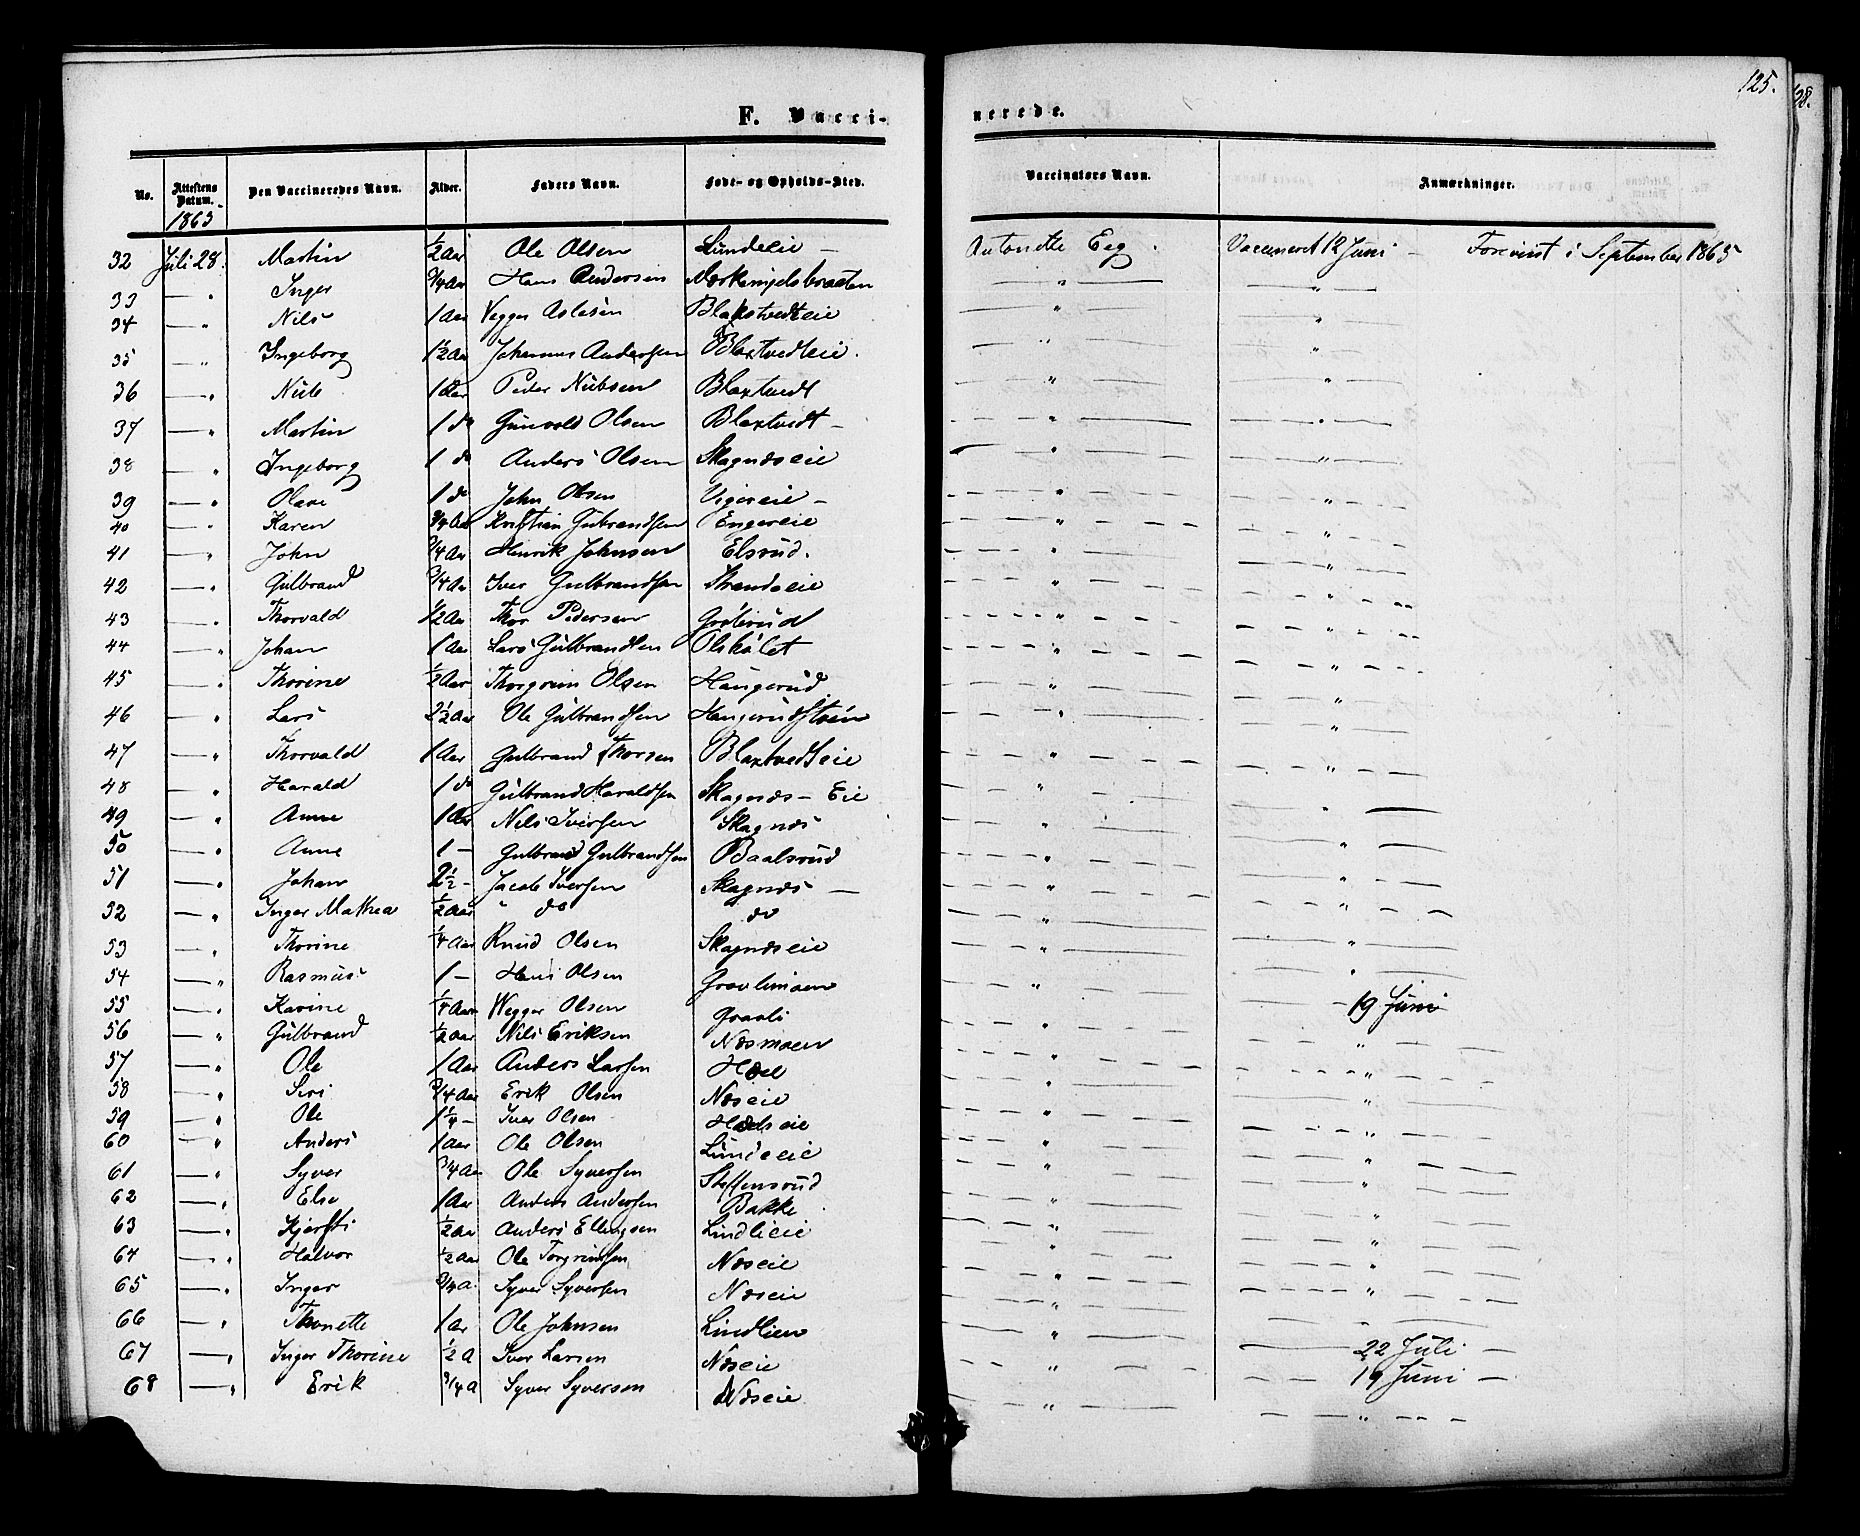 125.
128.
F. Vacci-
nerede.
No. Attestens Datum. Den Vaccineredes Navn. Alder. Faders Navn. Føde- og Opholds-Sted. Vaccinators Navn. Anmærkninger.
1863
32 Juli 28. Martin ½ Aar Ole Olsen Lundeeie – Antonette Eeg. Vaccineret 12 Juni – Foreviist i September 1863
33 — " Inger ¾ Aar Hans Andersen — " — — " —
34 — " Nils 1 Aar Vegger Aslesen Blakstvedteie — " — — " —
35 — " Ingeborg 1½ Aar Johannes Andersen Blaxtvedteie. — " — — " —
36 — " Niels 1 Aar Peder Nielsen Blaxtvedt — " — — " —
37 — " Martin 1 do Gunvald Olsen Blaxtvedt – — " — — " —
38 — " Ingeborg 1 do Anders Olsen Skagnæseie — " — — " —
39 — " Olave 1 do John Olsen Vigereie – — " — — " —
40 — " Karen ¾ Aar Kristian Gulbrandsen Engereie — " — — " —
41 — " John ¾ Aar Henrik Johnsen Elsrud. — " — — " —
42 — " Gulbrand ¾ Aar Iver Gulbrandsen Strandeeie — " — — " —
43 — " Thorvald ½ Aar Thor Pedersen — " — — " —
44 — " Johan 1 Aar Lars Gulbrandsen Olshølet — " — — " —
45 — " Thorine ½ Aar Thorgrim Olsen Haugerud — " — — " —
46 — " Lars 2½ Aar Ole Gulbrandsen — " — — " —
47 — " Thorvald 1 Aar Gulbrand Thorsen Blaxtvedteie — " — — " —
48 — " Harald 1 do Gulbrand Haraldsen Skagnæs – Eie — " — — " —
49 — " Anne 1 Aar Nils Iversen Skagnæs — " — — " —
50 — " Anne 1 – Gulbrand Gulbrandsen Baalsrud — " — — " —
51 — " Johan 2½ – Jacob Iversen Skagnæs — — " — — " —
32 — " Inger Mathea ½ Aar " do do — " — — " —
53 — " Thorine ¼ Aar Knud Olsen Skagnæseie — " — — " —
54 — " Rasmus 1 – Hans Olsen Gravlimoen — " — — " —
55 — " Karine ¼ Aar Wegger Olsen Graali — " — — 19 Juni
56 — " Gulbrand ½ Aar Nils Eriksen Næsmoen — " — — " —
57 — " Ole 1 Aar Anders Larsen — " — — " —
58 — " Siri ¾ Aar Erik Olsen Næseie — " — — " —
59 — " Ole 1¼ – Iver Olsen — " — — " —
60 — " Anders 1 Aar Ole Olsen Lundeeie — " — — " —
61 — " Syver ¾ Aar Ole Syversen Steffensrud — " — — " —
62 — " Else 1 Aar Anders Andersen Bakke — " — — " —
63 — " Kjersti ½ Aar Anders Ellingsen Lindlieie — " — — " —
64 — " Halvor ½ Aar Ole Torgrimsen Næseie — " — — " —
65 — " Inger ¾ A. Syver Syversen Næseie — " — — " —
66 — " Thonette 1 Ar Ole Johnsen Lindlien — " — — " —
67 — " Inger Thorine ½ A Iver Larsen Næseie — " — — 22 Juli —
68 — " Erik ¾ A Syver Syversen Næseie — " — — 19 Juni —
— " —